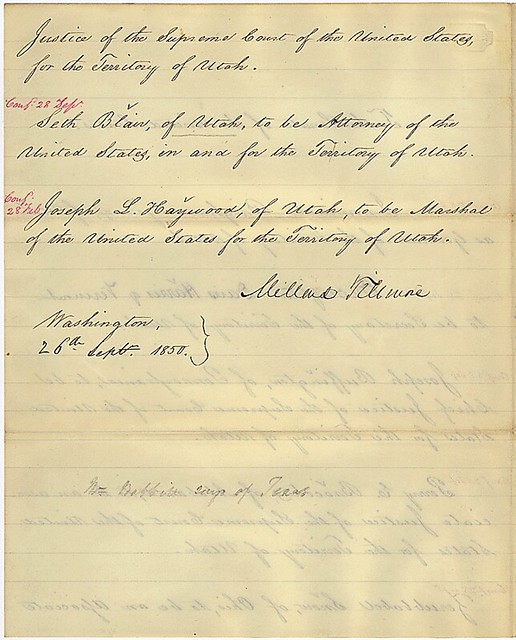 Justice of the Supreme Court of the United States,
for the Territory of Utah.
Conf. 28 Sep.
Seth Blair, of Utah, to be Attorney of the
United States, in and for the Territory of Utah.
Conf.
28 Feb
Joseph L. Haywood, of Utah, to be Marshal
of the United States for the Territory of Utah.
Millard Fillmore
Washington,
26th Septr. 1850.
Babbitt of Texas